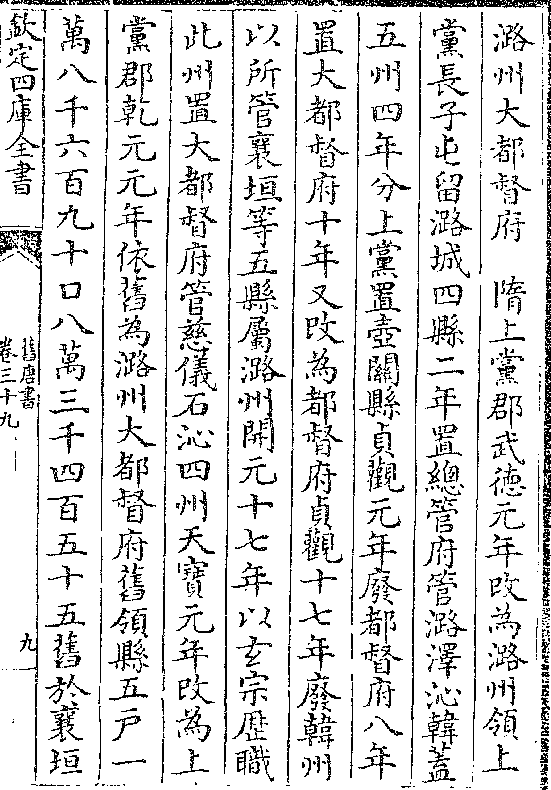 潞州大都督府　隋上黨郡武德元年改為潞州領上
黨長子屯留潞城四縣二年置總管府管潞澤沁韓蓋
五州四年分上黨置壺關縣貞觀元年廢都督府八年
置大都督府十年又改為都督府貞觀十七年廢韓州
以所管襄垣等五縣屬潞州開元十七年以玄宗歷職
此州置大都督府管慈儀石沁四州天寶元年改為上
黨郡乾元元年依舊為潞州大都督府舊領縣五戸一
萬八千六百九十口八萬三千四百五十五舊於襄垣
欽定四庫全書
舊唐書
卷三十九
九